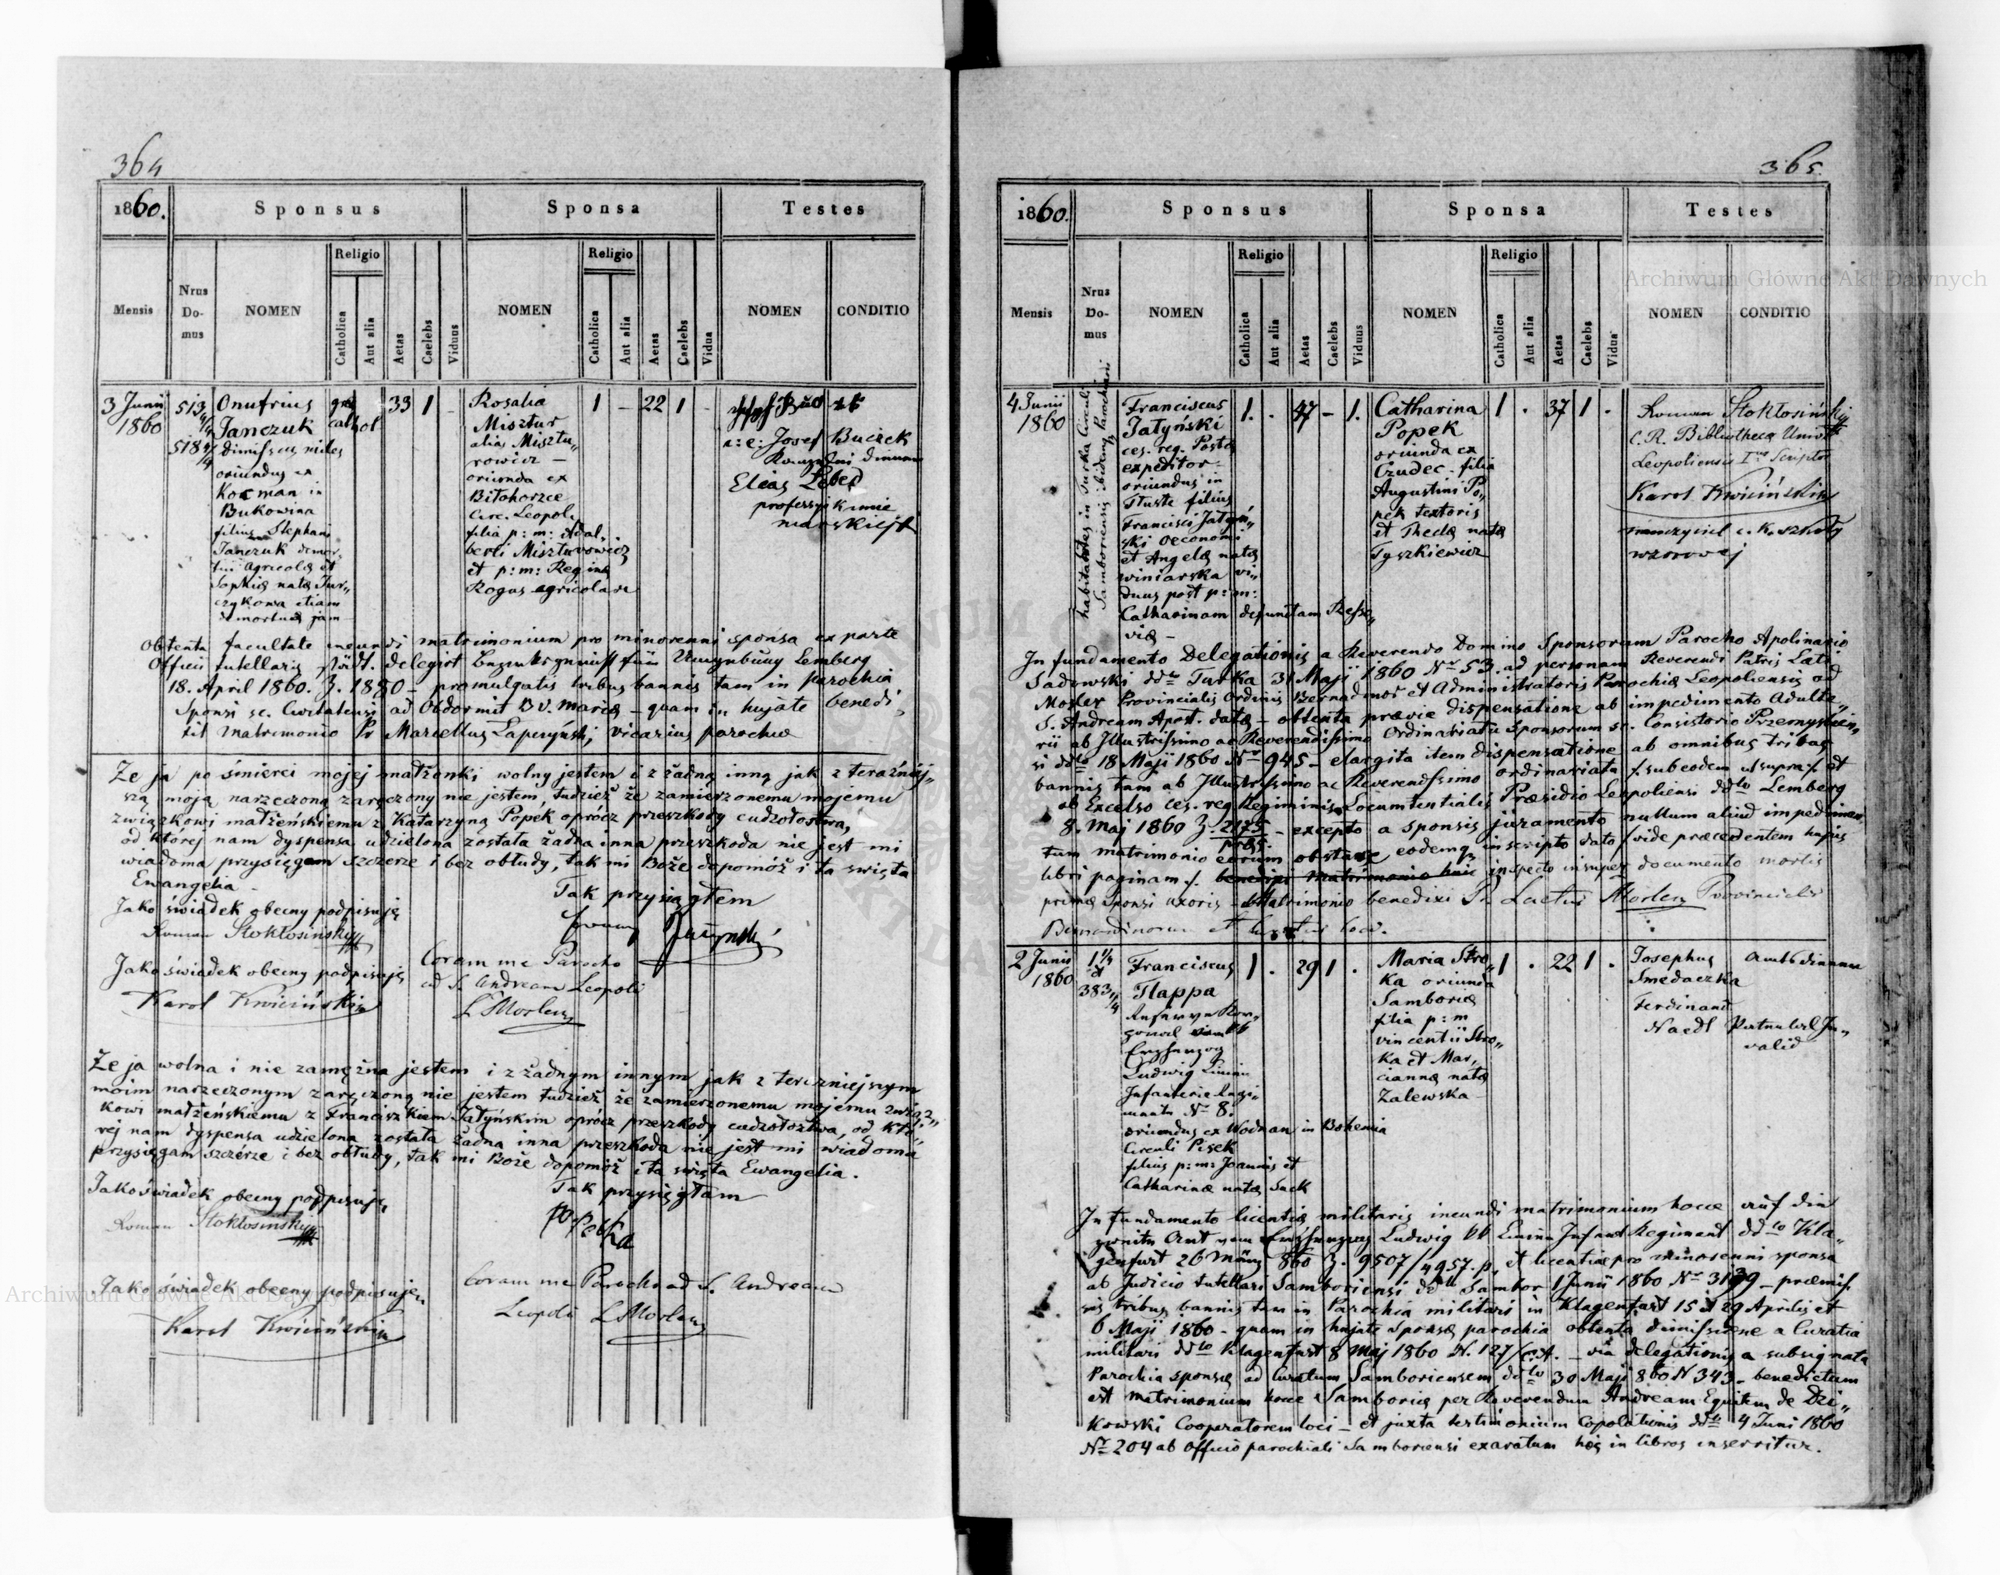 364
1860.
Sponsus
Sponsa
Testes
Mensis
Nrus Domus
NOMEN
Religio
Catholica
Aut alia
Aetas
Caelebs
Viduus
NOMEN
Religio
Catholica
Aut alia
Aetas
Caelebs
Vidua
NOMEN
CONDITIO
3 Junii
1860
513 4/4
518 4/4
Onufrius
Janczuk
dimissus miles
oriundus ex
Kocman in
Bukowina
filius Stephani
Janczuk demor„
tui agricolæ et
Sophiæ natæ Jur„
czykowa etiam
demortuæ jam
gr.
cathol
33
1
Rosalia
Misztur
alias Misztu„
rowicz —
oriunda ex
Biłohorzce
Circ. Leopol.
filia p: m: Adal„
berti Miszturowicz
et p: m: Reginæ
Rogus agricolarum
1
-
22
1
-
Josef Buczek
Elias Lebed
profesyi kominiarskiej
Obtenta facultate ineundi matrimonium pro minorenni sponsa ex parte
Officii tutellaris städt. delegirt Bezirksgericht für Umgebung Lemberg
18. April 1860. Z. 1880 - promulgatis tribus bannis tam in parochia
Sponsi sc. Civitatensi ad Obdormit B V. Mariæ - quam in hujate benedi„
xit matrimonio Pr Marcellus Łapczyński vicarius parochiæ
Że ja po śmierci mojej małżonki wolny jestem i z żadną inną jak z teraźniej„
szą moją narzeczoną zaręczony nie jestem, tudzież że zamierzonemu mojemu
związkowi małżeńskiemu z Katarzyną Popek oprócz przeszkody cudzołostwa,
od której nam dyspensa udzielona została żadna inna przeszkoda nie jest mi
wiadoma przysięgam szczerze i bez obłudy, tak mi Boże dopomóż i ta święta
Ewangelia -
Tak przysiągłem
Jako świadek obecny podpisuję
Roman Stokłosiński
Jako świadek obecny podpisuję
Karol Kwiciński
Coram me Parocho
ad S. Andream Leopoli
L Morlen
Że ja wolna i nie zamężna jestem i z żadnym innym jak z terazniejszym
moim narzeczonym zaręczoną nie jestem tudzież że zamierzonemu mojemu związ„
kowi małżeńskiemu z Franciszkiem Jatyńskim oprócz przeszkody cudzołoztwa, od któ„
rej nam dyspensa udzielona została żadna inna przeszkoda nie jest mi wiadoma
przysięgam szczérze i bez obłudy, tak mi Boże dopomóż i ta święta Ewangelia.
Tak przysięgłam
Jako świadek obecny podpisuję
Roman Stokłosiński
Jako świadek obecny podpisuję
Karol Kwiciński
Coram me Parocho ad S. Andream
Leopoli L Morlen
365.
1860.
Sponsus
Sponsa
Testes
Mensis
Nrus Domus
NOMEN
Religio
Catholica
Aut alia
Aetas
Caelebs
Viduus
NOMEN
Religio
Catholica
Aut alia
Aetas
Caelebs
Vidua
NOMEN
CONDITIO
4 Junii
1860
habitantes in Turka Circuli
Samboriensis ibidem Parochiani
Franciscus
Jatyński
ces. reg. Postæ
expeditor
oriundus in
Tłuste filius
Francisci Jatyń„
ski oeconomi
et Angelæ natæ
winiarska vi„
duus post p: m:
Catharinam defunctam
1.
.
47
-
1.
Catharina
Popek
oriunda ex
Czudec filia
Augustini Po„
pek textoris
et Theclæ natæ
Tyszkiewicz
1
.
37
1
.
Roman Stokłosiński
C. R. Bibliothecæ Univer
Leopoliensis Imus Scriptor
Karol Kwiciński
nauczyciel c. K. szkoły
wzorowej
In fundamento Delegationis a Reverendo Domino Sponsorum Parocho Apolinario
Sadowski ddto Turka 31 Maji 1860 Nr 53. ad personam Reverendi Patris Læti
Morlex Provincialis Ordinis Bernadinor et Administratoris Parochiæ Leopoliensis ad
S. Andream Apost. datæ - obtenta prævie dispensatione ab impedimento Adulte„
rii ab Illustrissimo ac Reverendissimo Ordinariatu Sponsorum sc. Consistorio Przemyslien„
si ddto 18 Maji 1860 Nr 945 - elargita item dispensatione ab omnibus tribus
bannis tam ab Illustrissimo ac Reverendissimo ordinariatu /. sub eodem ut supra /. et
ab Excelso ces. reg Regiminis Locumtentialis Præsidio Leopoliensi ddto Lemberg
8. Maj 1860 Z. 2175 - excepto a sponsis juramento nullum aliud impedimen
præs.
tum matrimonio eorum obstare eodemq inscripto dato /vide præcedentem hujus
libri paginam /. benedixi matrimonio huic inspecto insuper documento mortis
primæ Sponsi uxoris - Matrimonio benedixi P. Lætus Morlex Provincialis
Bernardinorum et loci.
2 Junii
1860
1 1/4
et
383 4/4
Franciscus
Tlappa
Erzherzog
Ludwig Linien
Infanterie Regi„
ments Nr 8.
oriundus ex Wodnan in Bohemia
Circuli Pisek
filius p: m: Joannis et
Catharinæ natæ Sack
1
.
29
1
.
Maria Stro„
ka oriunda
Samboriæ
filia p: m
vincentii Stro„
ka et Mar„
ciannæ natæ
Zalewska
1
.
22
1
.
Josephus
Smedaczka
Amtsdiener
Ferdinand
Naedl
Patental In„
valid
In fundamento licentiæ militaris ineundi matrimonium hocce auf die
zweite Art vom Erzherzog Ludwig kk Linien Infant Regiment ddto Kla„
genfurt 26 März 860 Z. 9507/4957. p, et licentiæ pro minorenni sponsa
ab Judicio tutellari Samboriensi ddto Sambor 1 Junii 1860 Nr 3139 - præmis„
sis tribus bannis tam in Parochia militari in Klagenfurt 15 et 29 Aprilis et
6 Maji 1860 - quam in hujate Sponsæ parochia obtenta dimissione a Curatia
militari ddto Klagenfurt 8 Maj 1860 N. 127/ - via delegationis a subsignata
Parochia sponsæ ad Curatum Samboriensem ddto 30 Maji 860 N 343 - benedictum
est matrimonium hocce Samboriæ per Reverendum Andream Equitem de Dzi„
kowski Cooperatorem loci - et juxta testimonium Copolationis ddto 4 Juni 1860
Nr 204 ab officio parochiali Samboriensi exaratum his in libros inserritur.
Archiwum Główne Akt Dawnych
Archiwum Główne Akt Dawnych